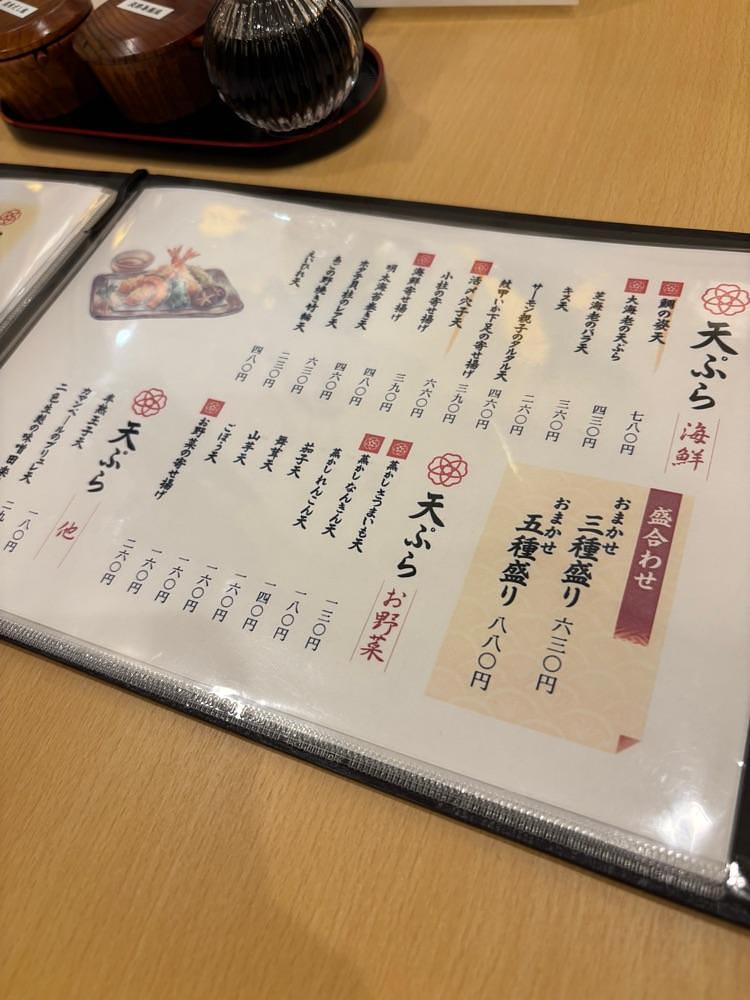 天ぷら 海鮮
鯛の姿天 七八〇円
大海老の天ぷら 四三〇円
芝海老のバラ天 三六〇円
キス天 二六〇円
サーモン親子のタルタル天 四六〇円
紋甲いか下足の寄せ揚げ 三九〇円
活〆穴子天 六六〇円
小柱の寄せ揚げ 三九〇円
海鮮寄せ揚げ 四八〇円
明太海苔巻き天 四六〇円
ホタテ貝柱のレア天 六三〇円
あごの野焼き竹輪天 二三〇円
えいひれ天 四八〇円
盛合わせ
おまかせ 三種盛り 六三〇円
おまかせ 五種盛り 八八〇円
天ぷら お野菜
蒸かしさつまいも天 一三〇円
蒸かしなんきん天 一八〇円
蒸かしれんこん天 一四〇円
茄子天 一六〇円
舞茸天 一六〇円
山芋天 一六〇円
ごぼう天 一六〇円
お野菜の寄せ揚げ 二六〇円
天ぷら 他
半熟玉子天 一八〇円
カマンベールのブリュレ天 二九
二色生麩の味噌田楽